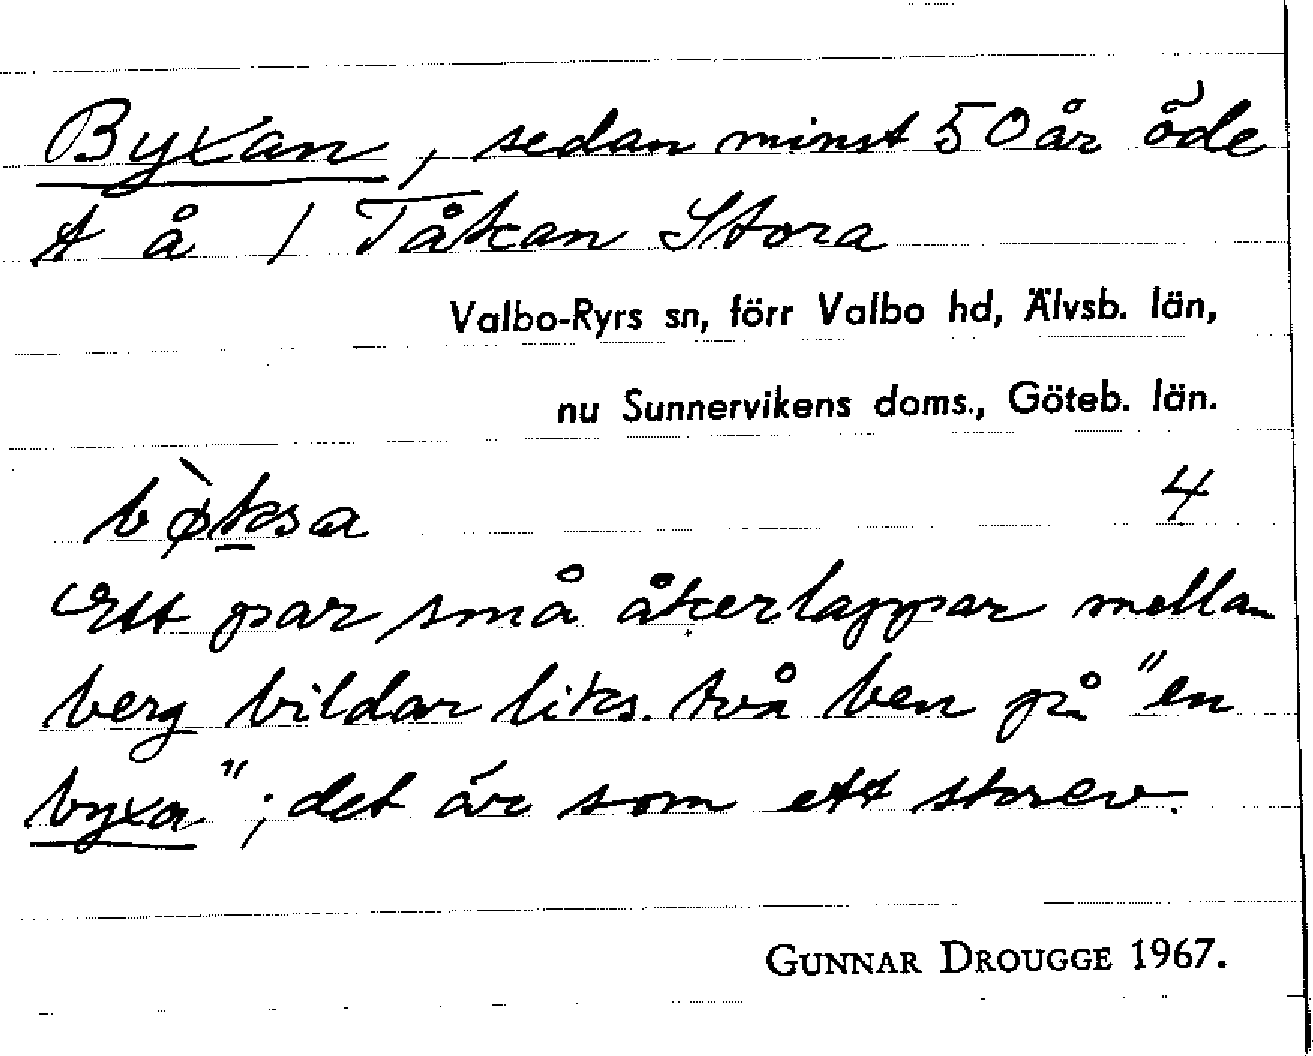 Byxan, sedan minst 50 år öde
t å 1 Tåkan Stora
Valbo-Ryrs sn, förr Valbo hd, Älvsb. län,
nu Sunnervikens doms., Göteb. län.
bø̀ksa 4
Ett par små åkerlappar mellan
berg bildar liks. två ben på "en
byxa"; det är som ett skrev.
GUNNAR DROUGGE 1967.